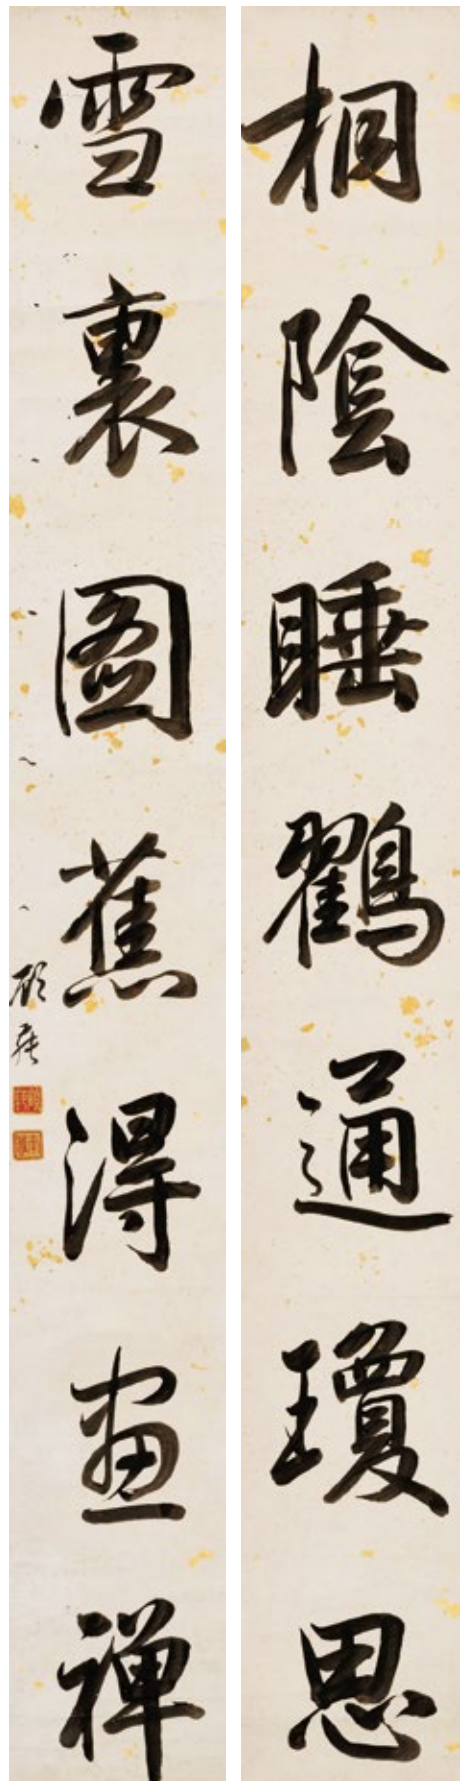 桐陰睡鸛通瓊思
雪裏圖蕉得畫禪
顧蒓